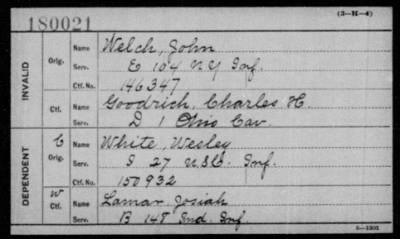 (3-H-4)
180021
INVALID
Orig.
Name Welch, John
Serv. E 104 N Y Inf.
Ctf. No. 146347
Ctf.
Name Goodrich, Charles H.
Serv. D 1 Ohio Cav.
DEPENDENT
C
Orig.
Name White, Wesley
Serv. I 27 U.S.C. Inf.
Ctf. No. 150932
W
Ctf.
Name Lamar, Josiah
Serv. B 148 Ind. Inf